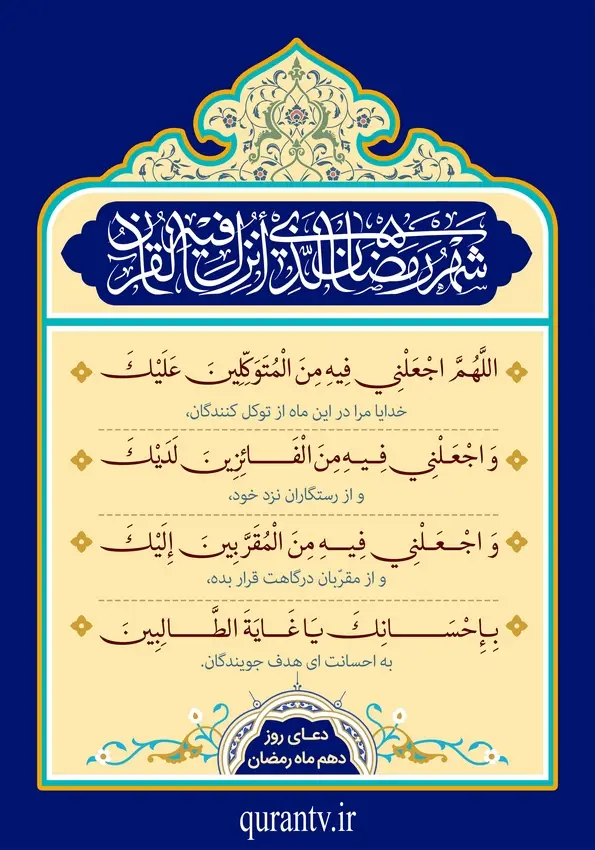 شَهْرُ رَمَضَانَ الَّذِي أُنْزِلَ فِيهِ الْقُرْآنُ
اللَّهُمَّ اجْعَلْنِي فِيهِ مِنَ الْمُتَوَكِّلِينَ عَلَيْكَ
خدایا مرا در این ماه از توکل کنندگان،
وَ اجْعَلْنِي فِيهِ مِنَ الْفَائِزِينَ لَدَيْكَ
و از رستگاران نزد خود،
وَ اجْعَلْنِي فِيهِ مِنَ الْمُقَرَّبِينَ إِلَيْكَ
و از مقرّبان درگاهت قرار بده،
بِإِحْسَانِكَ يَا غَايَةَ الطَّالِبِينَ
به احسانت ای هدف جویندگان.
دعای روز
دهم ماه رمضان
qurantv.ir